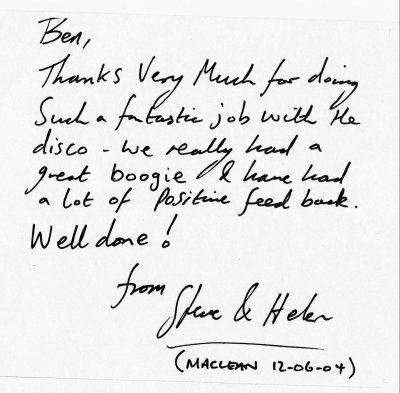 Ben,
Thanks Very Much for doing
Such a fantastic job with the
disco - we really had a
great boogie & have had
a lot of positive feed back.
Well done!
from
Steve & Helen
(MACLEAN 12-06-04)